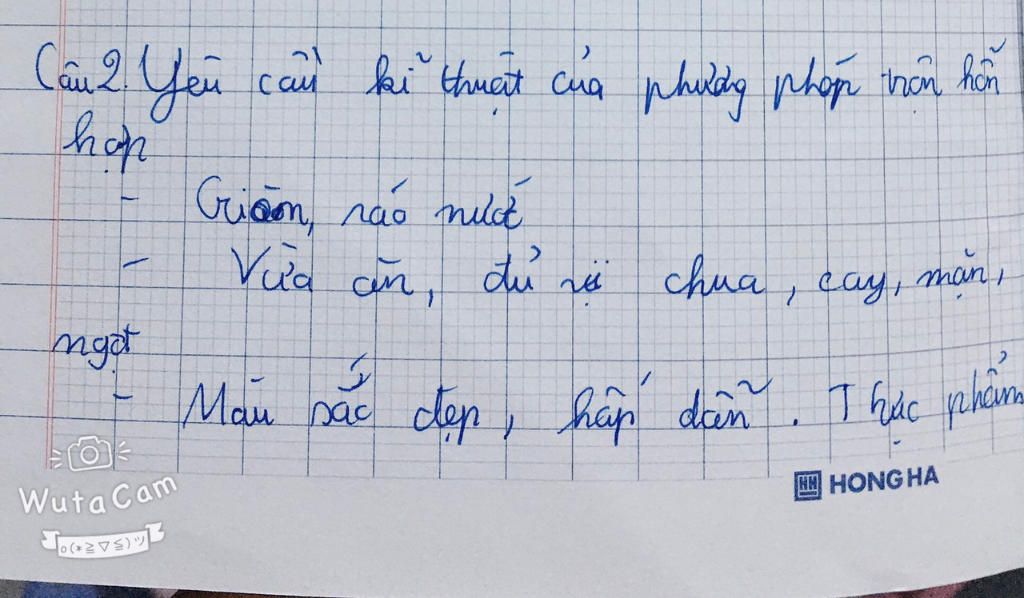 Câu 2. Yêu cầu kĩ thuật của phương pháp trộn hỗn
hợp
- Giòn, ráo nước
- Vừa ăn, đủ vị chua, cay, mặn,
ngọt
- Màu sắc đẹp, hấp dẫn. Thực phẩm
HH HONG HA
WutaCam
o(*≧▽≦)ツ